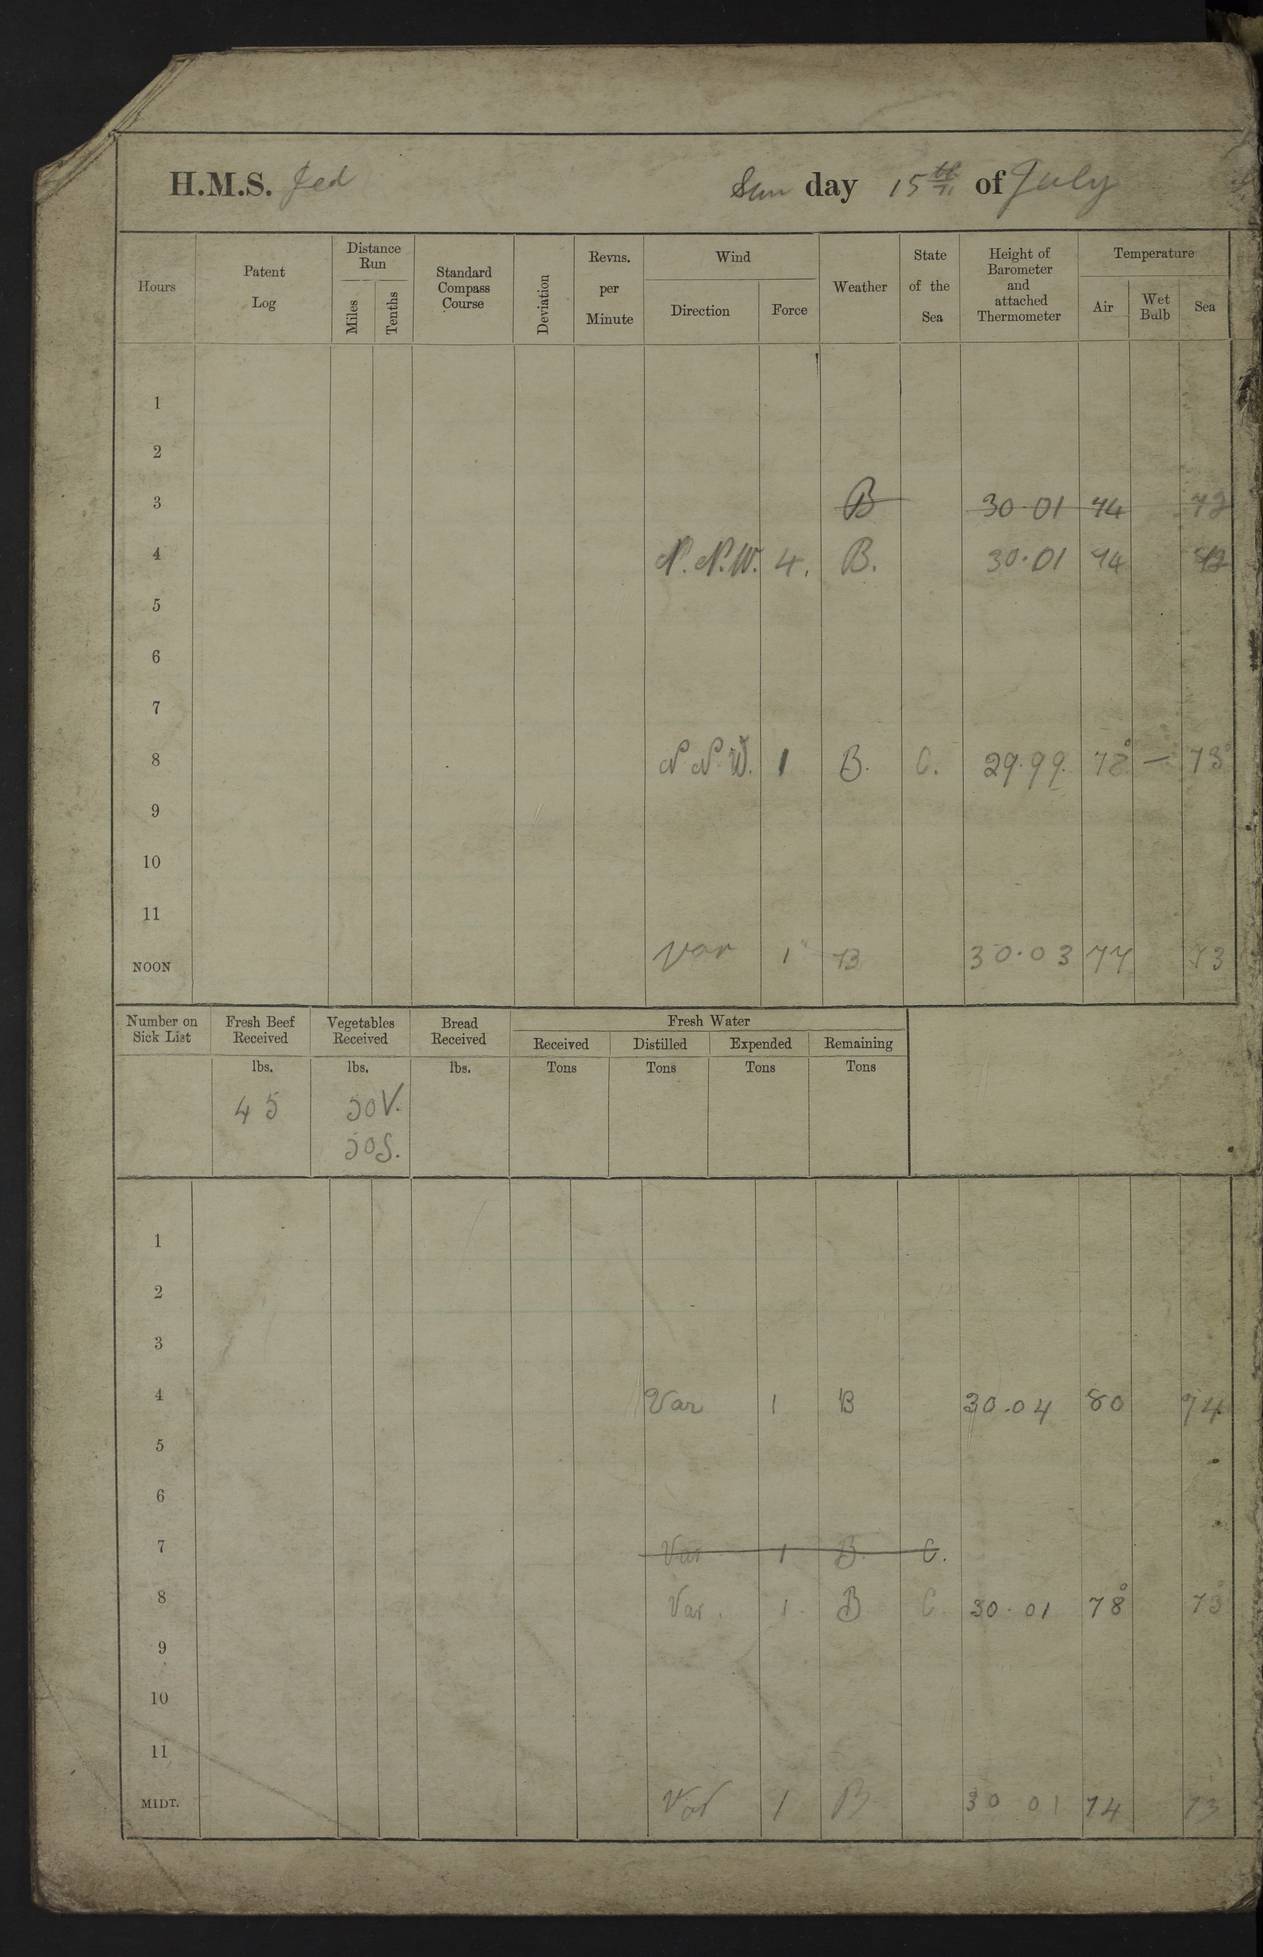 H.M.S. Jed Sun day 15th of July
Hours Patent Log Distance Run Miles Tenths Standard Compass Course Deviation Revns. per Minute Wind Direction Force Weather State of the Sea Height of Barometer and attached Thermometer Temperature Air Wet Bulb Sea
1
2
3 B 30.01 74 72
4 N.N.W. 4. B. 30.01 74 72
5
6
7
8 N N.W. 1 B. C. 29.99. 78° — 73°
9
10
11
NOON Var 1 B 30.03 77 73
Number on Sick List Fresh Beef Received Vegetables Received Bread Received Fresh Water
Received Distilled Expended Remaining
lbs. lbs. lbs. Tons Tons Tons Tons
45 50V.
50S.
1
2
3
4 Var 1 B 30.04 80 74
5
6
7 Var 1 B C.
8 Var. 1. B C 30.01 78° 73
9
10
11
MIDT. Var 1 B 30 01 74 73